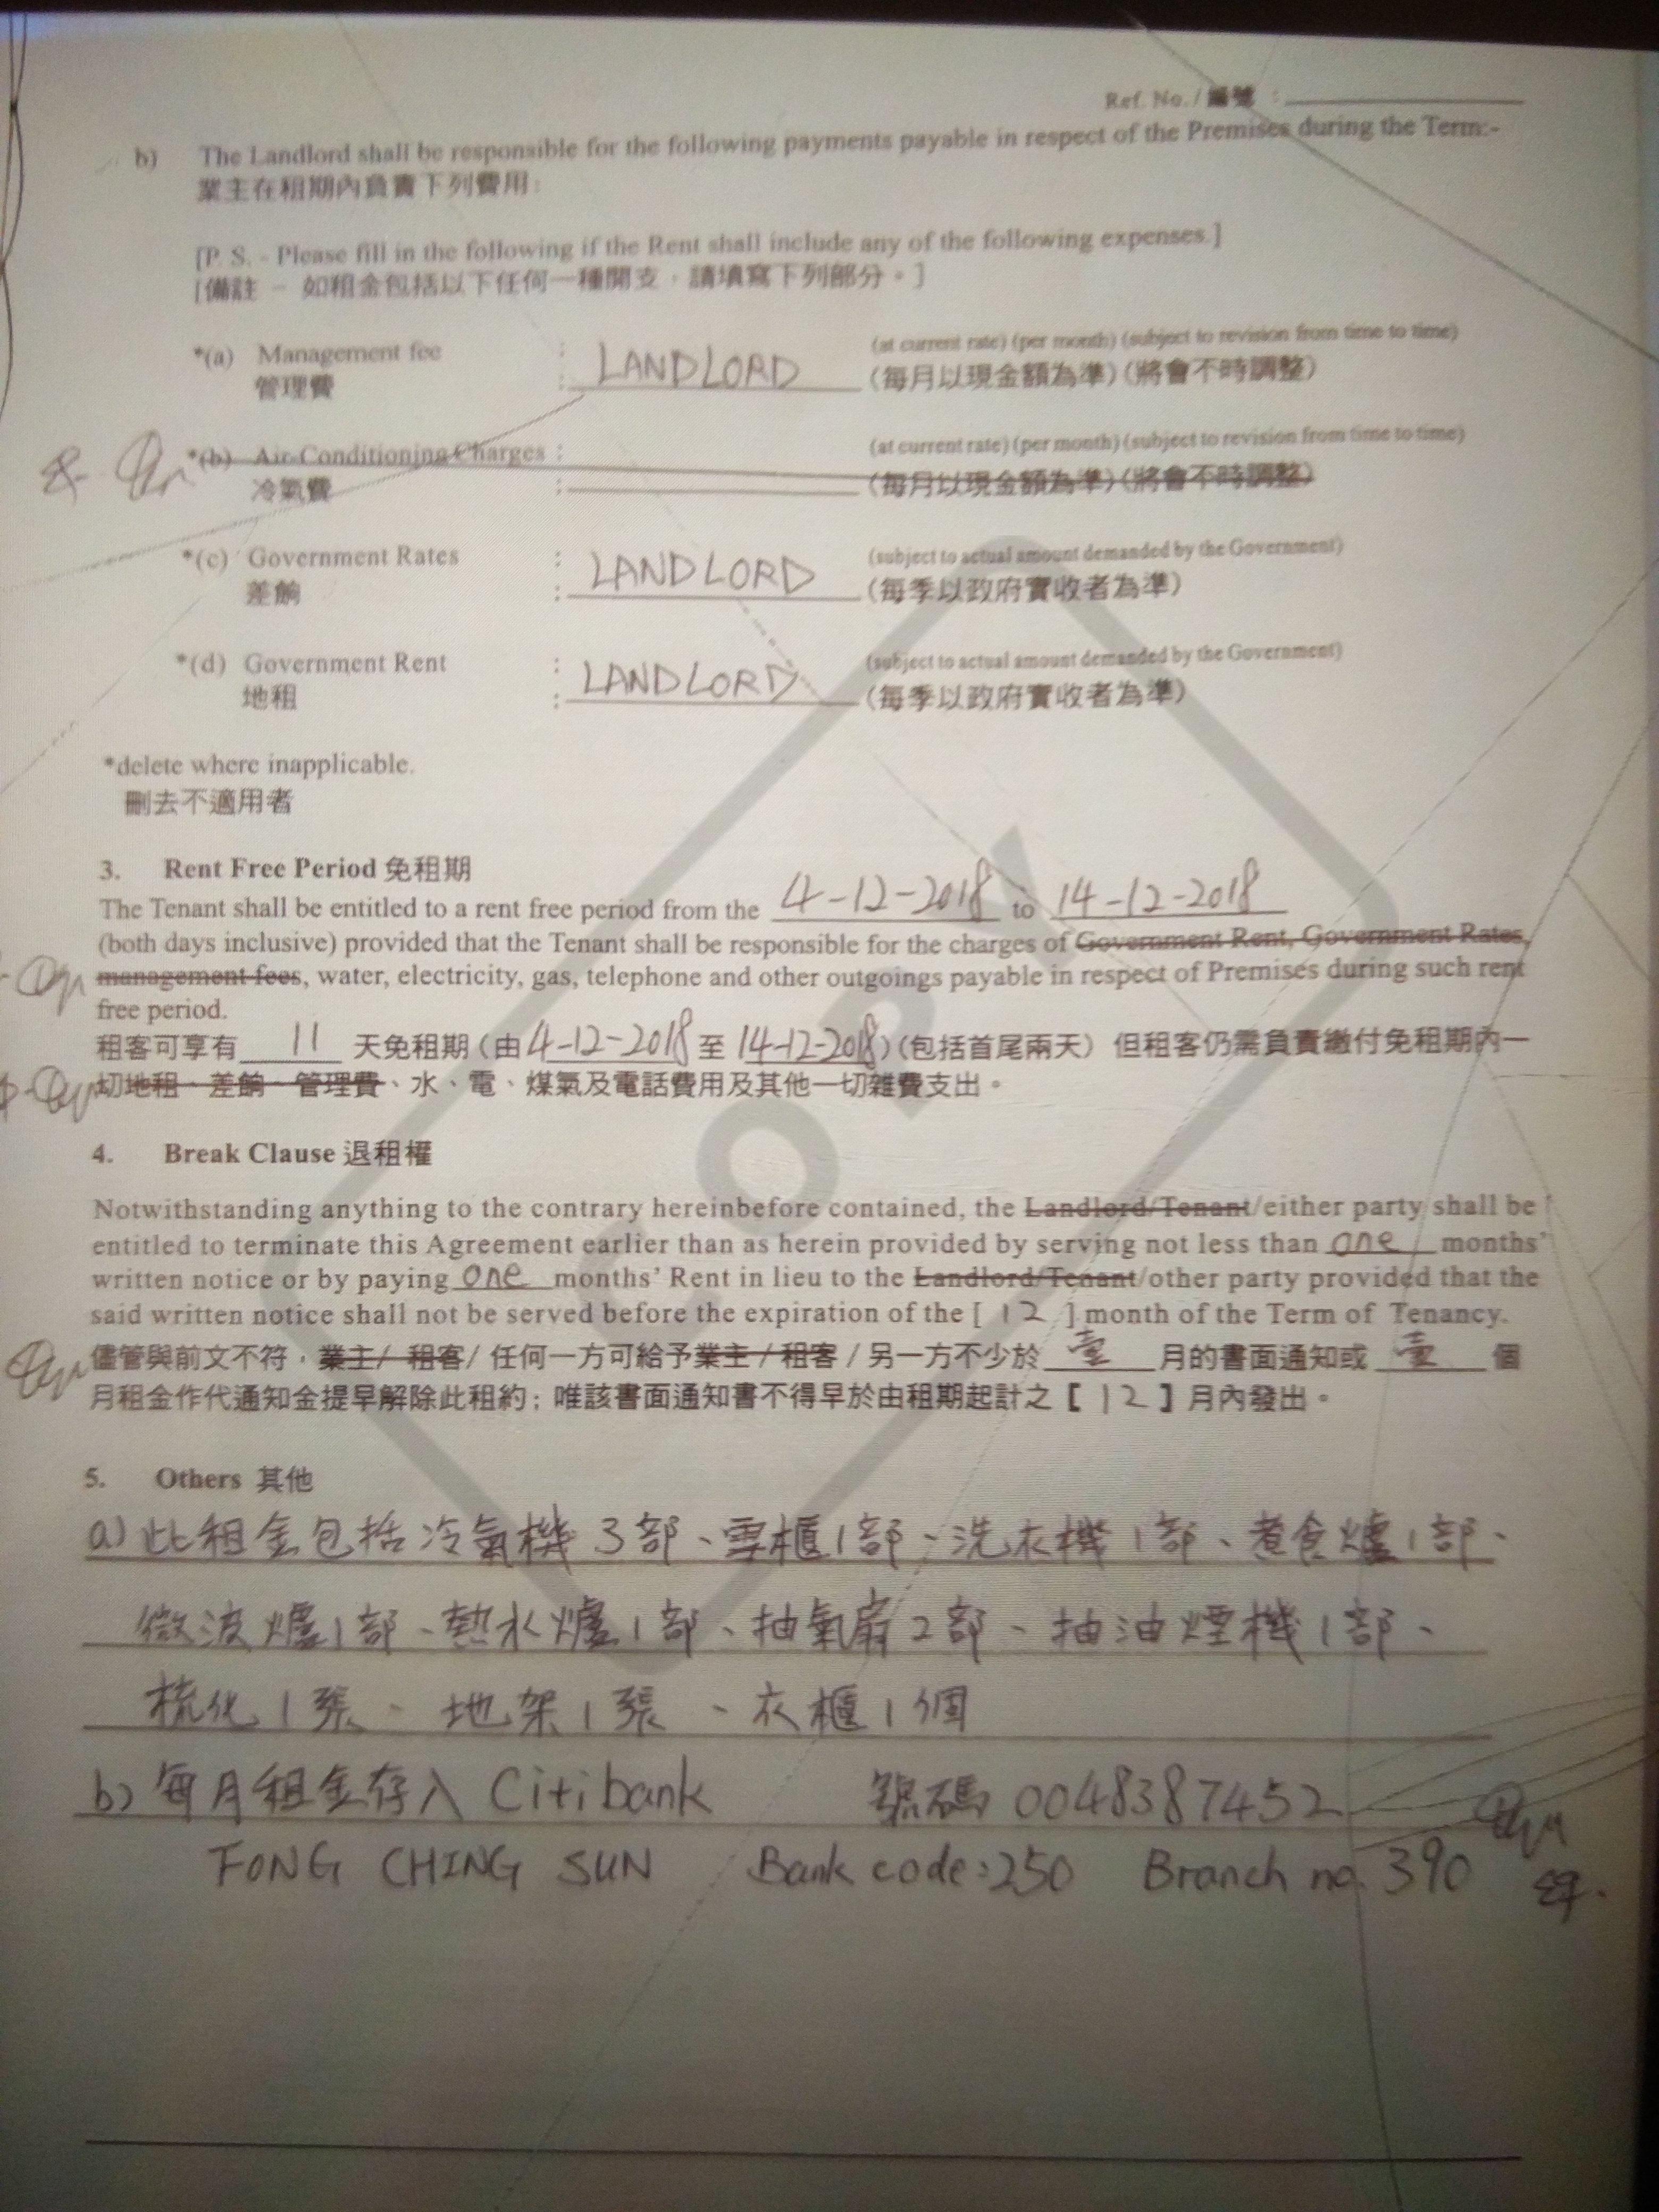 Ref. No. / 編號 :
b) The Landlord shall be responsible for the following payments payable in respect of the Premises during the Term:-
業主在租期內負責下列費用:
[P. S. - Please fill in the following if the Rent shall include any of the following expenses.]
[備註 - 如租金包括以下任何一種開支，請填寫下列部分。]
*(a) Management fee : LANDLORD (at current rate) (per month) (subject to revision from time to time)
管理費 : (每月以現金額為準)(將會不時調整)
*(b) Air-Conditioning Charges : (at current rate) (per month) (subject to revision from time to time)
冷氣費 : (每月以現金額為準)(將會不時調整)
*(c) Government Rates : LANDLORD (subject to actual amount demanded by the Government)
差餉 : (每季以政府實收者為準)
*(d) Government Rent : LANDLORD (subject to actual amount demanded by the Government)
地租 : (每季以政府實收者為準)
*delete where inapplicable.
刪去不適用者
3. Rent Free Period 免租期
The Tenant shall be entitled to a rent free period from the 4-12-2018 to 14-12-2018
(both days inclusive) provided that the Tenant shall be responsible for the charges of Government Rent, Government Rates,
management fees, water, electricity, gas, telephone and other outgoings payable in respect of Premises during such rent
free period.
租客可享有 11 天免租期 (由 4-12-2018 至 14-12-2018) (包括首尾兩天) 但租客仍需負責繳付免租期內一
切地租、差餉、管理費、水、電、煤氣及電話費用及其他一切雜費支出。
4. Break Clause 退租權
Notwithstanding anything to the contrary hereinbefore contained, the Landlord/Tenant/either party shall be
entitled to terminate this Agreement earlier than as herein provided by serving not less than one months'
written notice or by paying one months' Rent in lieu to the Landlord/Tenant/other party provided that the
said written notice shall not be served before the expiration of the [ 12 ] month of the Term of Tenancy.
儘管與前文不符，業主/ 租客/ 任何一方可給予業主 / 租客 / 另一方不少於 壹 月的書面通知或 壹 個
月租金作代通知金提早解除此租約; 唯該書面通知書不得早於由租期起計之【 12 】月內發出。
5. Others 其他
a) 此租金包括冷氣機 3 部、雪櫃 1 部、洗衣機 1 部、煮食爐 1 部、
微波爐 1 部、熱水爐 1 部、抽氣扇 2 部、抽油煙機 1 部、
梳化 1 張、地架 1 張、衣櫃 1 個
b) 每月租金存入 Citibank 號碼 0048387452
FONG CHING SUN Bank code: 250 Branch no. 390
COPY